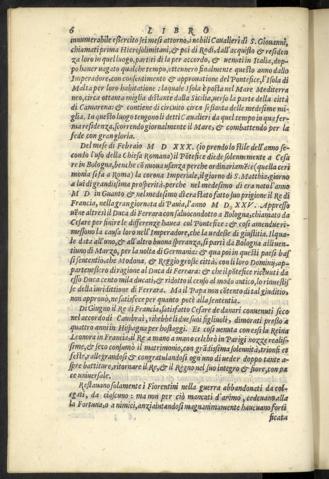 6 LIBRO
innumerabile esercito sei mesi attorno, i nobili Cavallieri di S. Giouanni,
chiamati prima Hierosolimitani, & poi di Rodi, dall'acquisto & residen
za loro in quel luogo, partiti di là per accordo, & uenuti in Italia, dop-
po hauer uagato qualche tempo, ottennero finalmente questo anno dallo
Imperadore con consentimento & approuatione del Pontefice, l'Isola di
Malta per loro habitatione: laquale Isola è posta nel Mare Mediterra
neo, circa ottanta miglia distante dalla Sicilia, uerso la parte della città
di Camarana & contiene di circuito circa sessanta delle medesime mi-
glia. In questo luogo tengono li detti Cauallieri da quel tempo in qua fer-
ma residenza, scorrendo giornalmente il Mare, & combattendo per la
fede con gran gloria.
Del mese di Febraio M D XXX. (io prendo lo stile dell'anno se-
condo l'uso della Chiesa Romana) il Pōtefice diede solennemente a Cesa
re in Bologna, benche cō monca usanza perche ordinariamēte (quella ceri
monia si fa a Roma) la corona Imperiale, il giorno di S. Matthia, giorno
a lui di grandissima prosperità: perche nel medesimo dì era nato l'anno
M D in Guanto & nel medesimo dì era stato fatto suo prigione il Re di
Francia, nella gran giornata di Pauia, l'anno M D XXV. Appresso
uēne altresì il Duca di Ferrara con saluocondotto a Bologna, chiamato da
Cesare per finire le differenze haueua col Pontefice: & così amendue ri-
messono la causa loro nell'Imperadore, che la uedesse di giustitia. Il qua-
le data all'uno, & all'altro buona speranza, si partì da Bologna alli uen-
tiuno di Marzo, per la uolta di Germania: & qua poi in quelli paesi das
si sententia, che Modona, & Reggio grosse città, con li loro Dominij ap-
partenessero di ragione al Duca di Ferrara: & che il pōtefice riceuuti da
esso Duca cento mila ducati, & ridotto il censo al modo antico, lo riuestis
se della iurisdittione di Ferrara. Ma il Papa non cōtento di tal giuditio,
non approuò, ne satisfece per quanto potè alla sententia.
Di Giugno il Re di Francia, satisfatto Cesare de danari conuenuti seco
nel accordo di Cambrai, rihebbe li due suoi figliuoli, dimorati presso a
quattro anni in Hispagna per hostaggi. Et così uenuta con essi la Reina
Leonora in Francia, il Re a mano a mano celebrò in Parigi nozze realis-
sime, & seco consumò il matrimonio, con grādissima solennità, trionfi et
feste; allegrandosi & congratulandosi ogn'uno di ueder doppo tante a-
spre battiture, ritornare il Re, & il Regno nel suo integro & fiore, con pa
ce uniuersale.
Restauano solamente i Fiorentini nella guerra abbandonati da col-
legati, da ciascuno: ma non per ciò mancati d'animo, cedeuano alla
la Fortuna, o a nimici, anzi aiutandosi magnanimamente haueuano forti
ficata